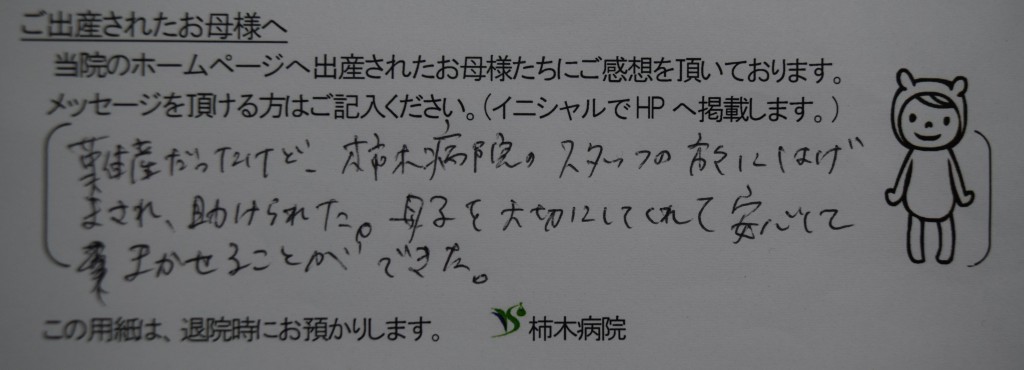 ご出産されたお母様へ
当院のホームページへ出産されたお母様たちにご感想を頂いております。
メッセージを頂ける方はご記入ください。（イニシャルでHPへ掲載します。）
難産だったけど、柿木病院のスタッフの方にはげ
まされ、助けられた。母子を大切にしてくれて安心して
まかせることができた。
この用紙は、退院時にお預かりします。
柿木病院